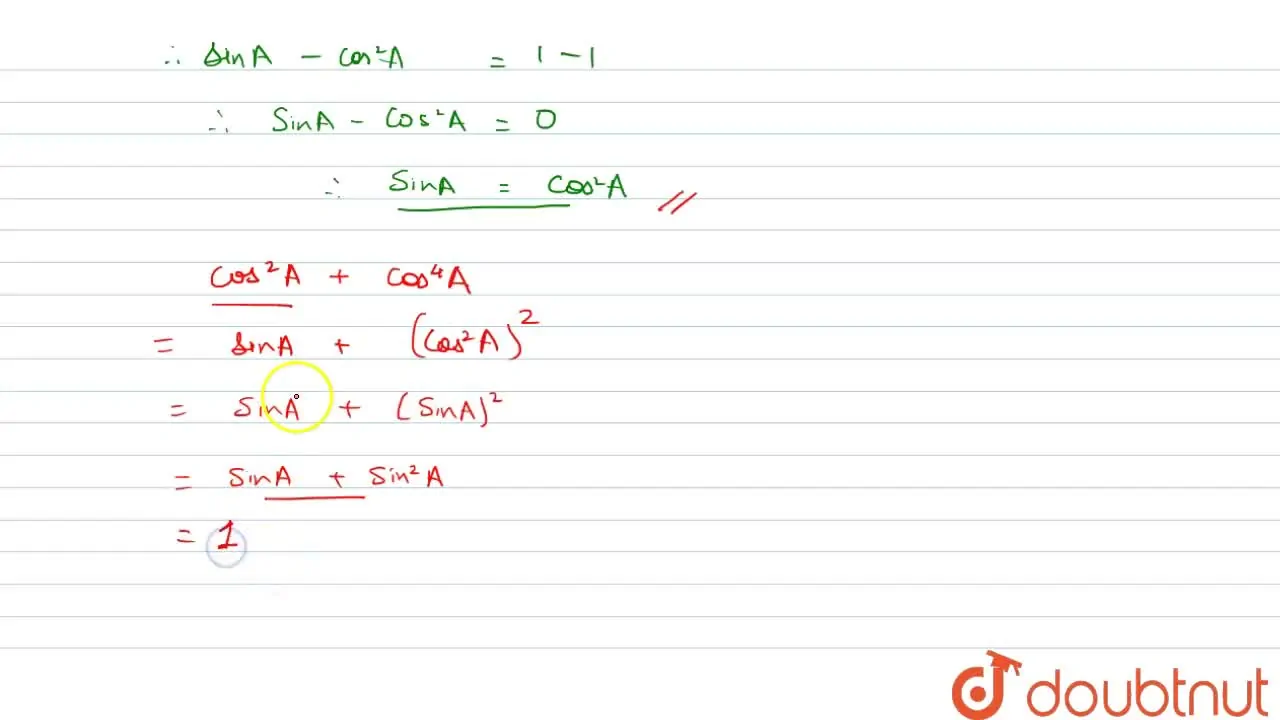 ∴ sinA - cos²A = 1 - 1
∴ SinA - Cos²A = 0
∴ SinA = Cos²A //
Cos²A + Cos⁴A
= sinA + (Cos²A)²
= SinA + (SinA)²
= SinA + Sin²A
= 1
doubtnut